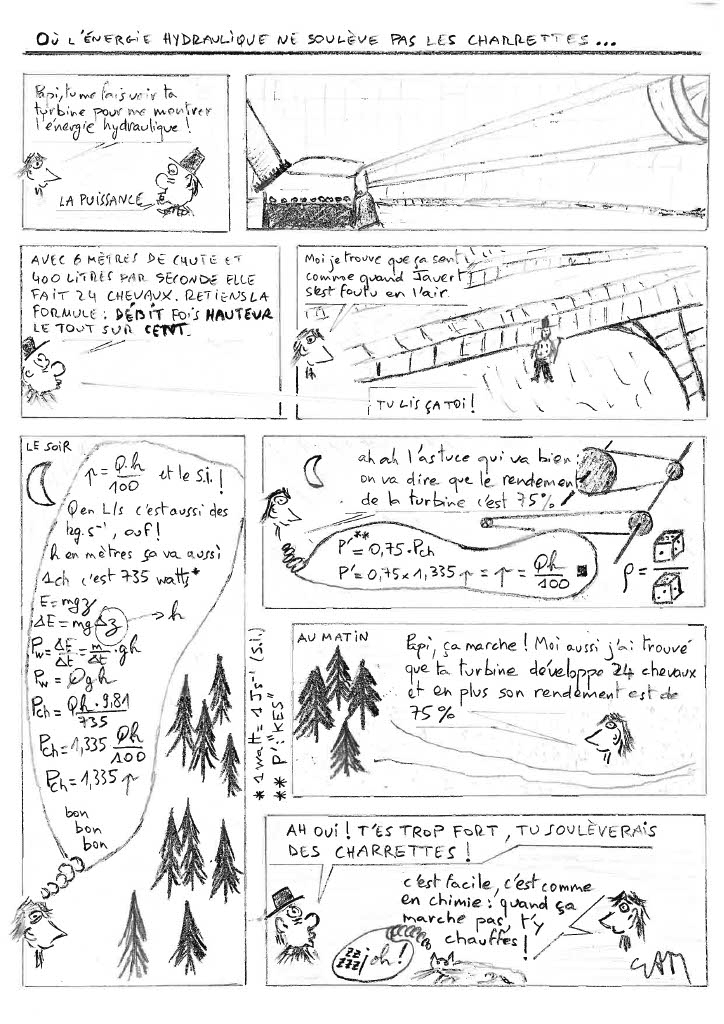 OÙ L'ÉNERGIE HYDRAULIQUE NE SOULÈVE PAS LES CHARRETTES...
Papi, tu me fais voir ta
turbine pour me montrer
l'énergie hydraulique !
LA PUISSANCE
AVEC 6 MÈTRES DE CHUTE ET
400 LITRES PAR SECONDE ELLE
FAIT 24 CHEVAUX. RETIENS LA
FORMULE : DÉBIT FOIS HAUTEUR
LE TOUT SUR CENT.
Moi je trouve que ça sent
comme quand Javert
s'est foutu en l'air.
TU LIS ÇA TOI !
LE SOIR
↑ = Q.h / 100 et le S.I. !
Q en L/s c'est aussi des
kg.s⁻¹, ouf !
h en mètres ça va aussi
1ch c'est 735 watts*
E = mgz
ΔE = mgΔz → h
Pw = ΔE/Δt = m/Δt . gh
Pw = Qgh
Pch = Qh . 9,81 / 735
Pch = 1,335 Qh/100
Pch = 1,335 ↑
bon
bon
bon
* 1 watt = 1 Js⁻¹ (S.I.)
** P' : "KES"
ah ah l'astuce qui va bien :
on va dire que le rendement
de la turbine c'est 75% !
P'** = 0,75 . Pch
P' = 0,75 x 1,335 ↑ = ↑ = Qh/100 ■
ρ =
AU MATIN
Papi, ça marche ! Moi aussi j'ai trouvé
que ta turbine développe 24 chevaux
et en plus son rendement est de
75 %
AH OUI ! T'ES TROP FORT, TU SOULÈVERAIS
DES CHARRETTES !
c'est facile, c'est comme
en chimie : quand ça
marche pas, t'y
chauffes !
zz
zzz
oh !